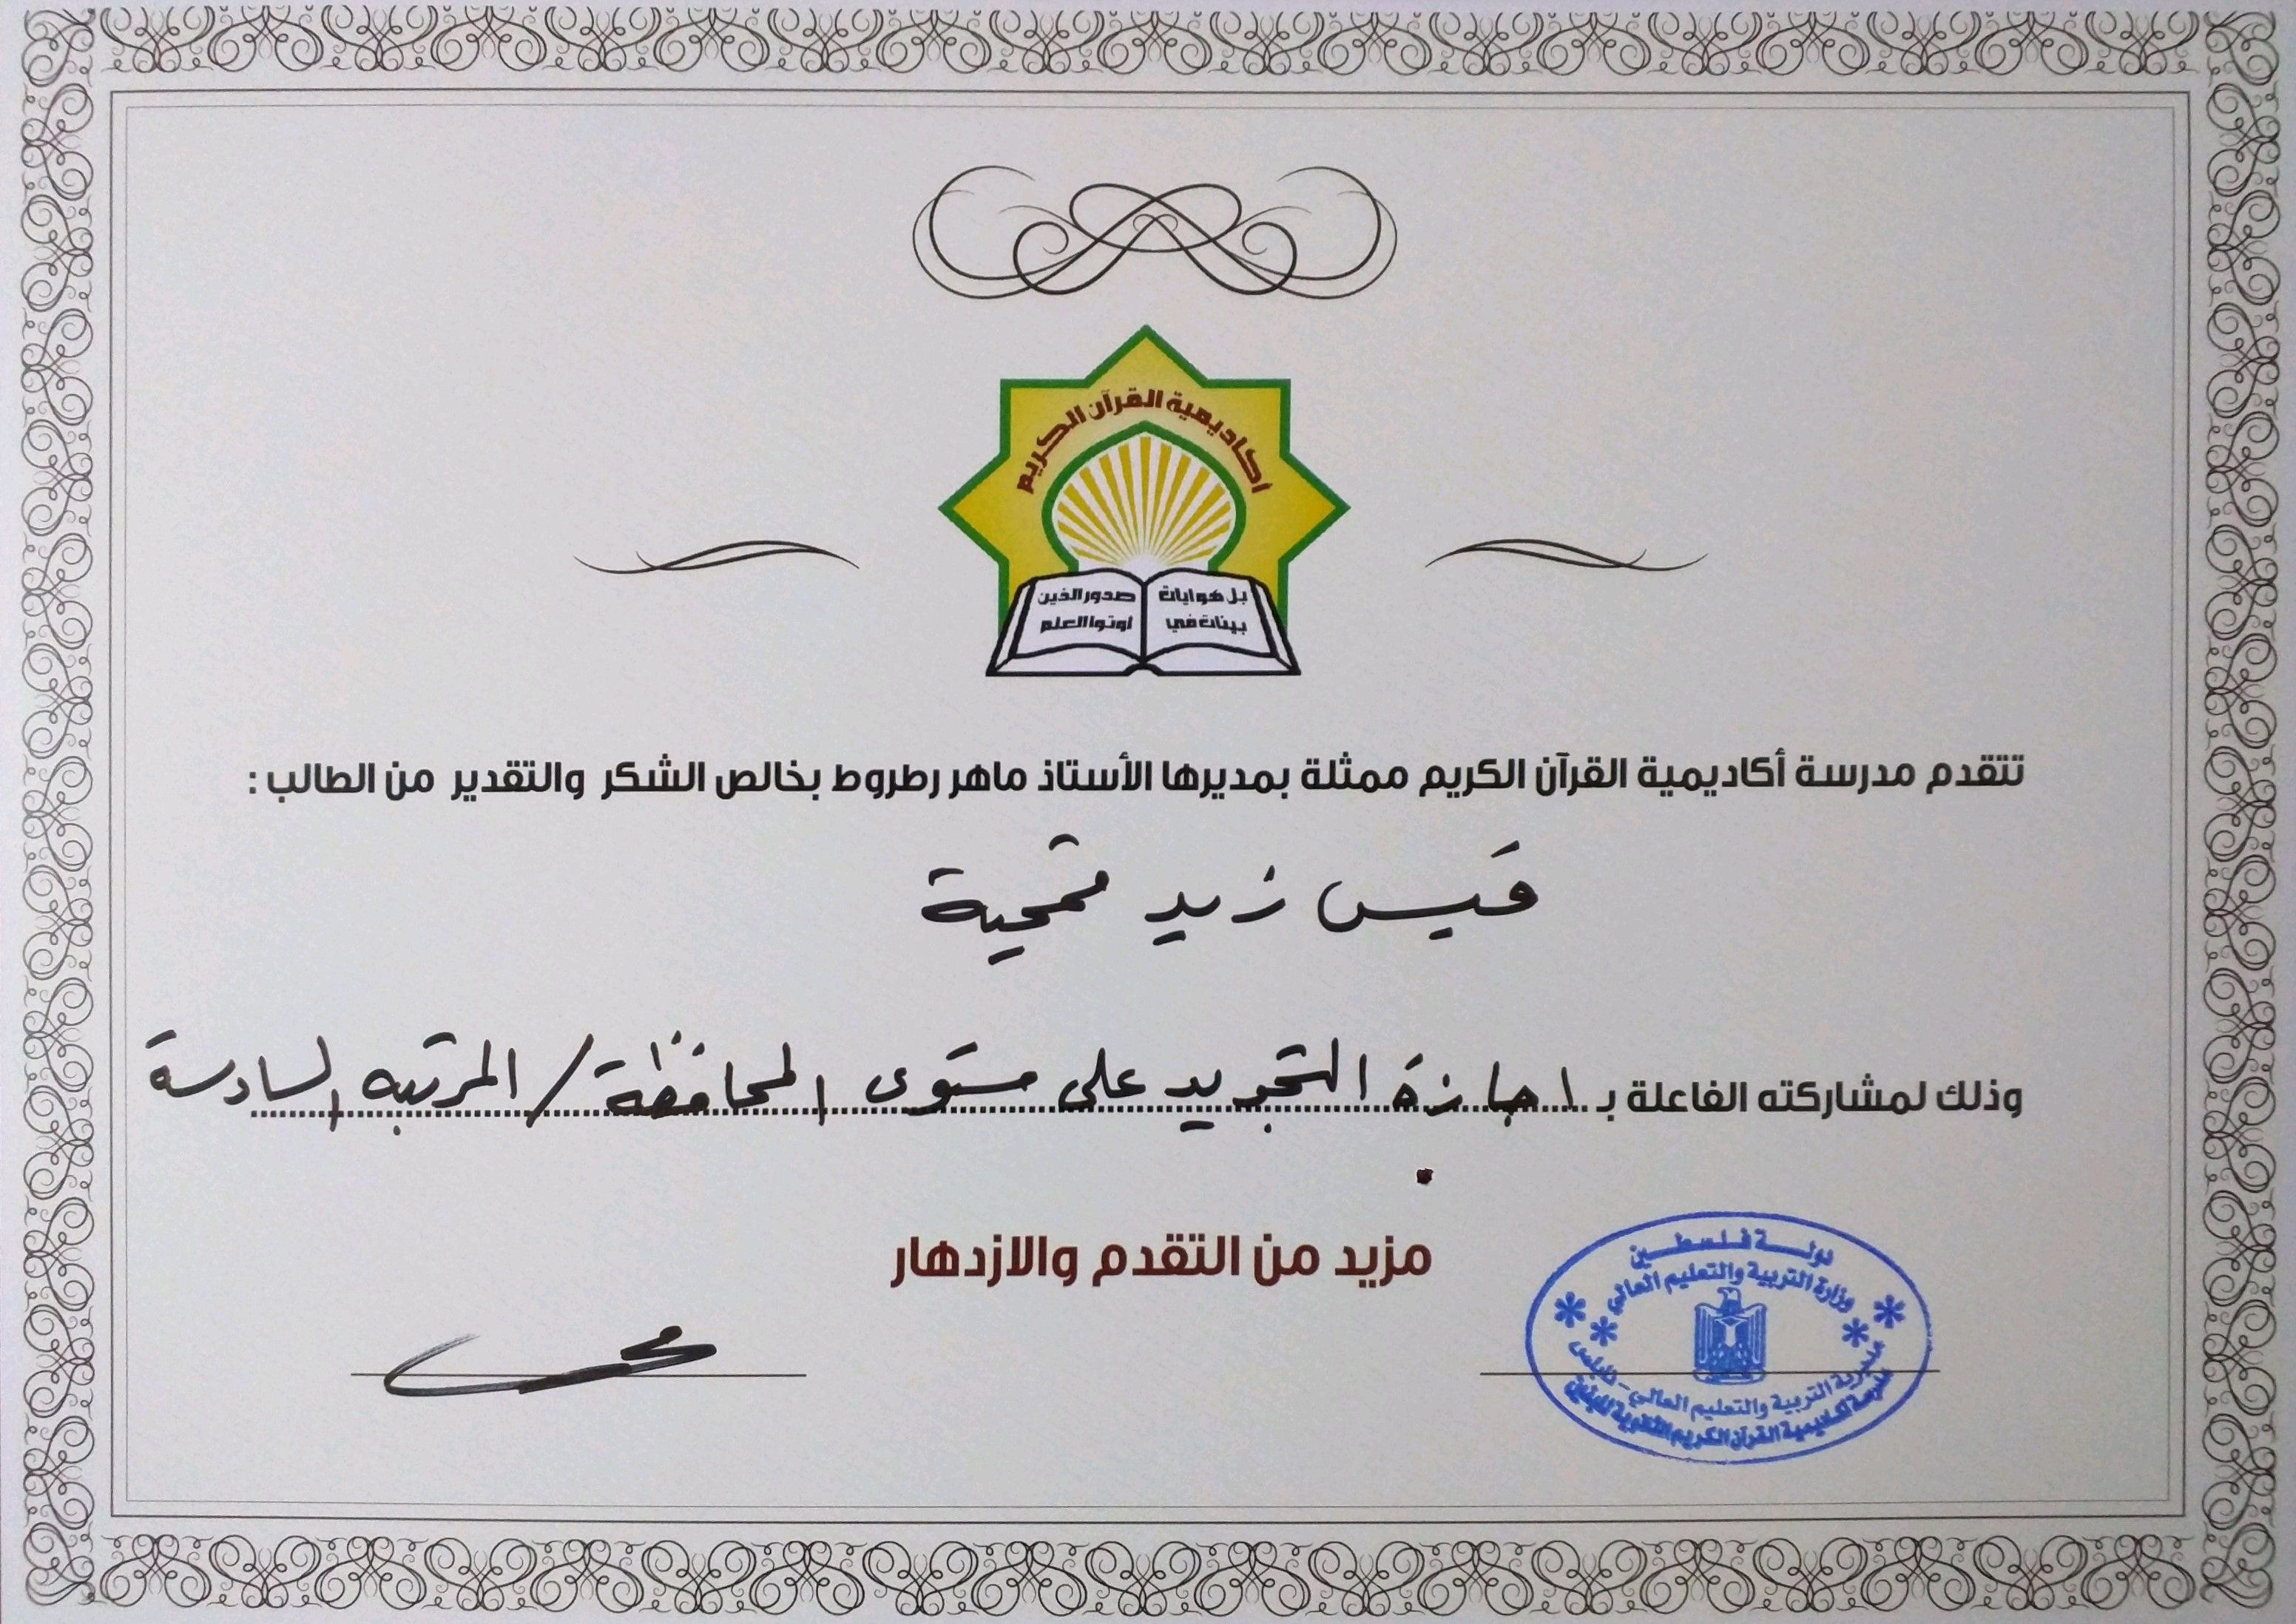 أكاديمية القرآن الكريم
بل هو ايات
بينات في
صدور الذين
اوتوا العلم
تتقدم مدرسة أكاديمية القرآن الكريم ممثلة بمديرها الأستاذ ماهر رطروط بخالص الشكر والتقدير من الطالب :
قيس زيد قمحية
وذلك لمشاركته الفاعلة بـ اجازة التجويد على مستوى المحافظة / المرتبه السادسة
مزيد من التقدم والازدهار
دولة فلسطين
وزارة التربية والتعليم العالي
مديرية التربية والتعليم العالي - نابلس
مدرسة اكاديمية القرآن الكريم الثانوية للبنين